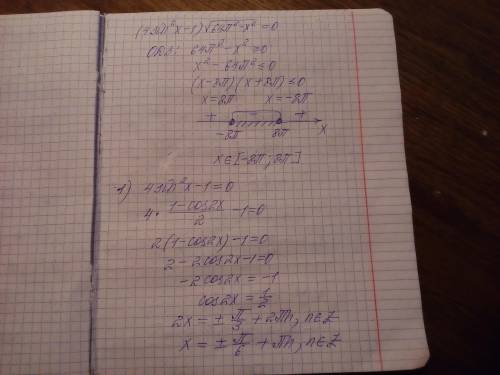 (4sin²x-1)√64π²-x² = 0
ОДЗ: 64π²-x² ≥0
x²- 64π² ≤0
(x-8π)(x+8π)≤0
x=8π x=-8π
+ - +
-8π 8π x
x∈[-8π;8π]
1) 4sin²x-1=0
4· (1-cos2x)/2 -1=0
2(1-cos2x)-1=0
2-2cos2x-1=0
-2cos2x = -1
cos2x = 1/2
2x = ± π/3 + 2πn, n∈Z
x = ± π/6 + πn, n∈Z